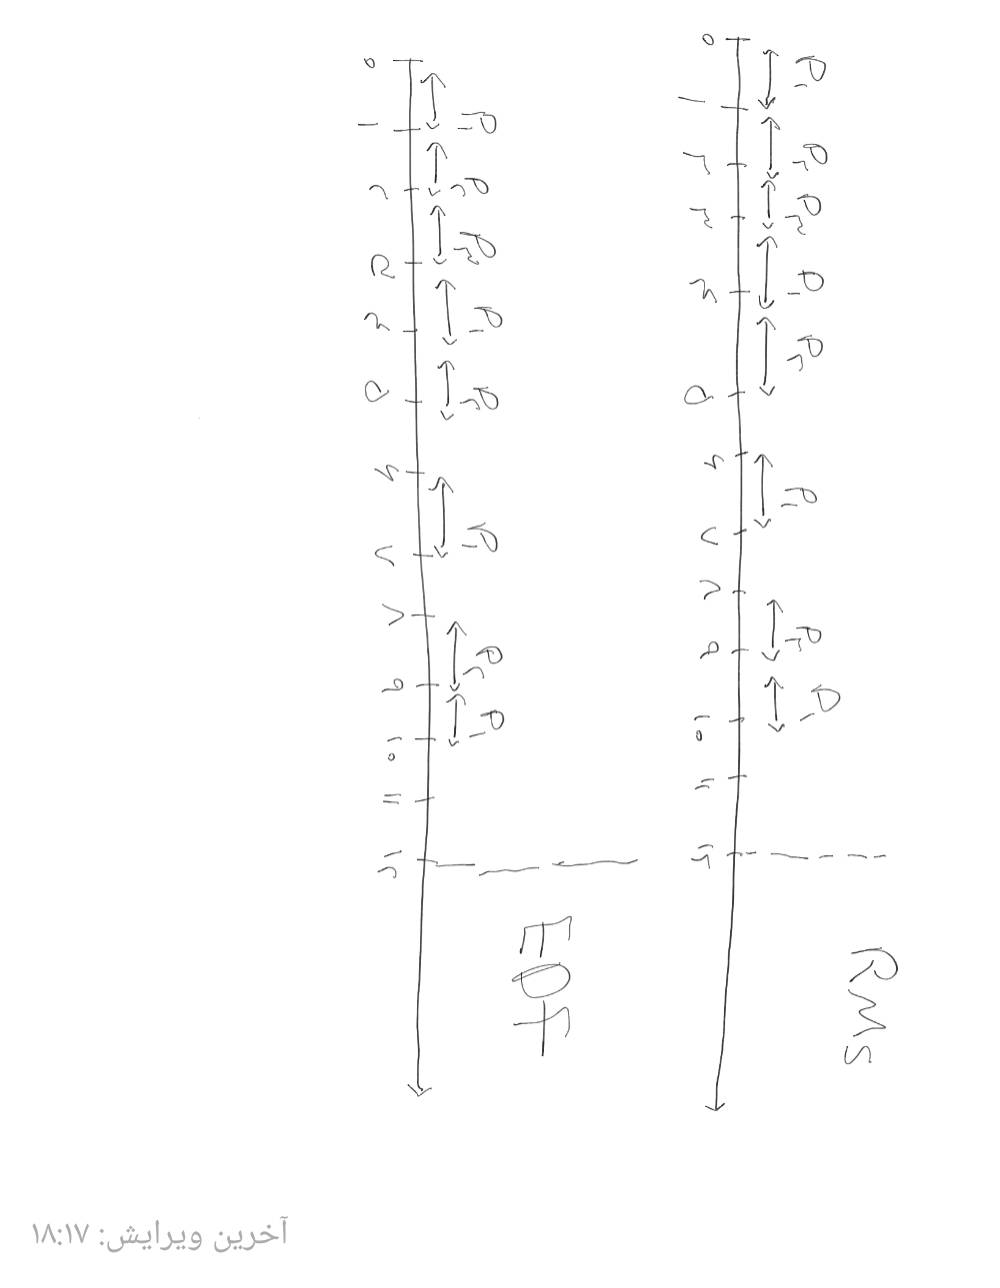 RMS
P۱ P۲ P۳ P۱ P۲ P۱ P۲ P۱
۰ ۱ ۲ ۳ ۴ ۵ ۶ ۷ ۸ ۹ ۱۰ ۱۱ ۱۲
EDF
P۱ P۲ P۳ P۱ P۲ P۱ P۲ P۱
۰ ۱ ۲ ۳ ۴ ۵ ۶ ۷ ۸ ۹ ۱۰ ۱۱ ۱۲
آخرین ویرایش: ۱۸:۱۷